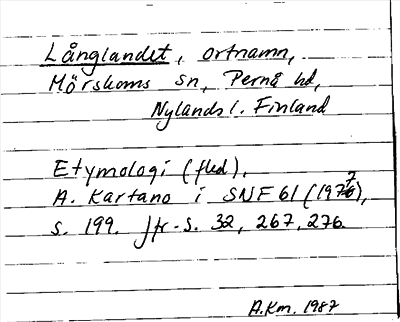 Långlandet, ortnamn,
Mörskoms sn, Pernå hd,
Nylands l. Finland
Etymologi (fled).
A. Kartano i SNF 61 (1977),
s. 199. Jfr. s. 32, 267, 276.
A.Km. 1987